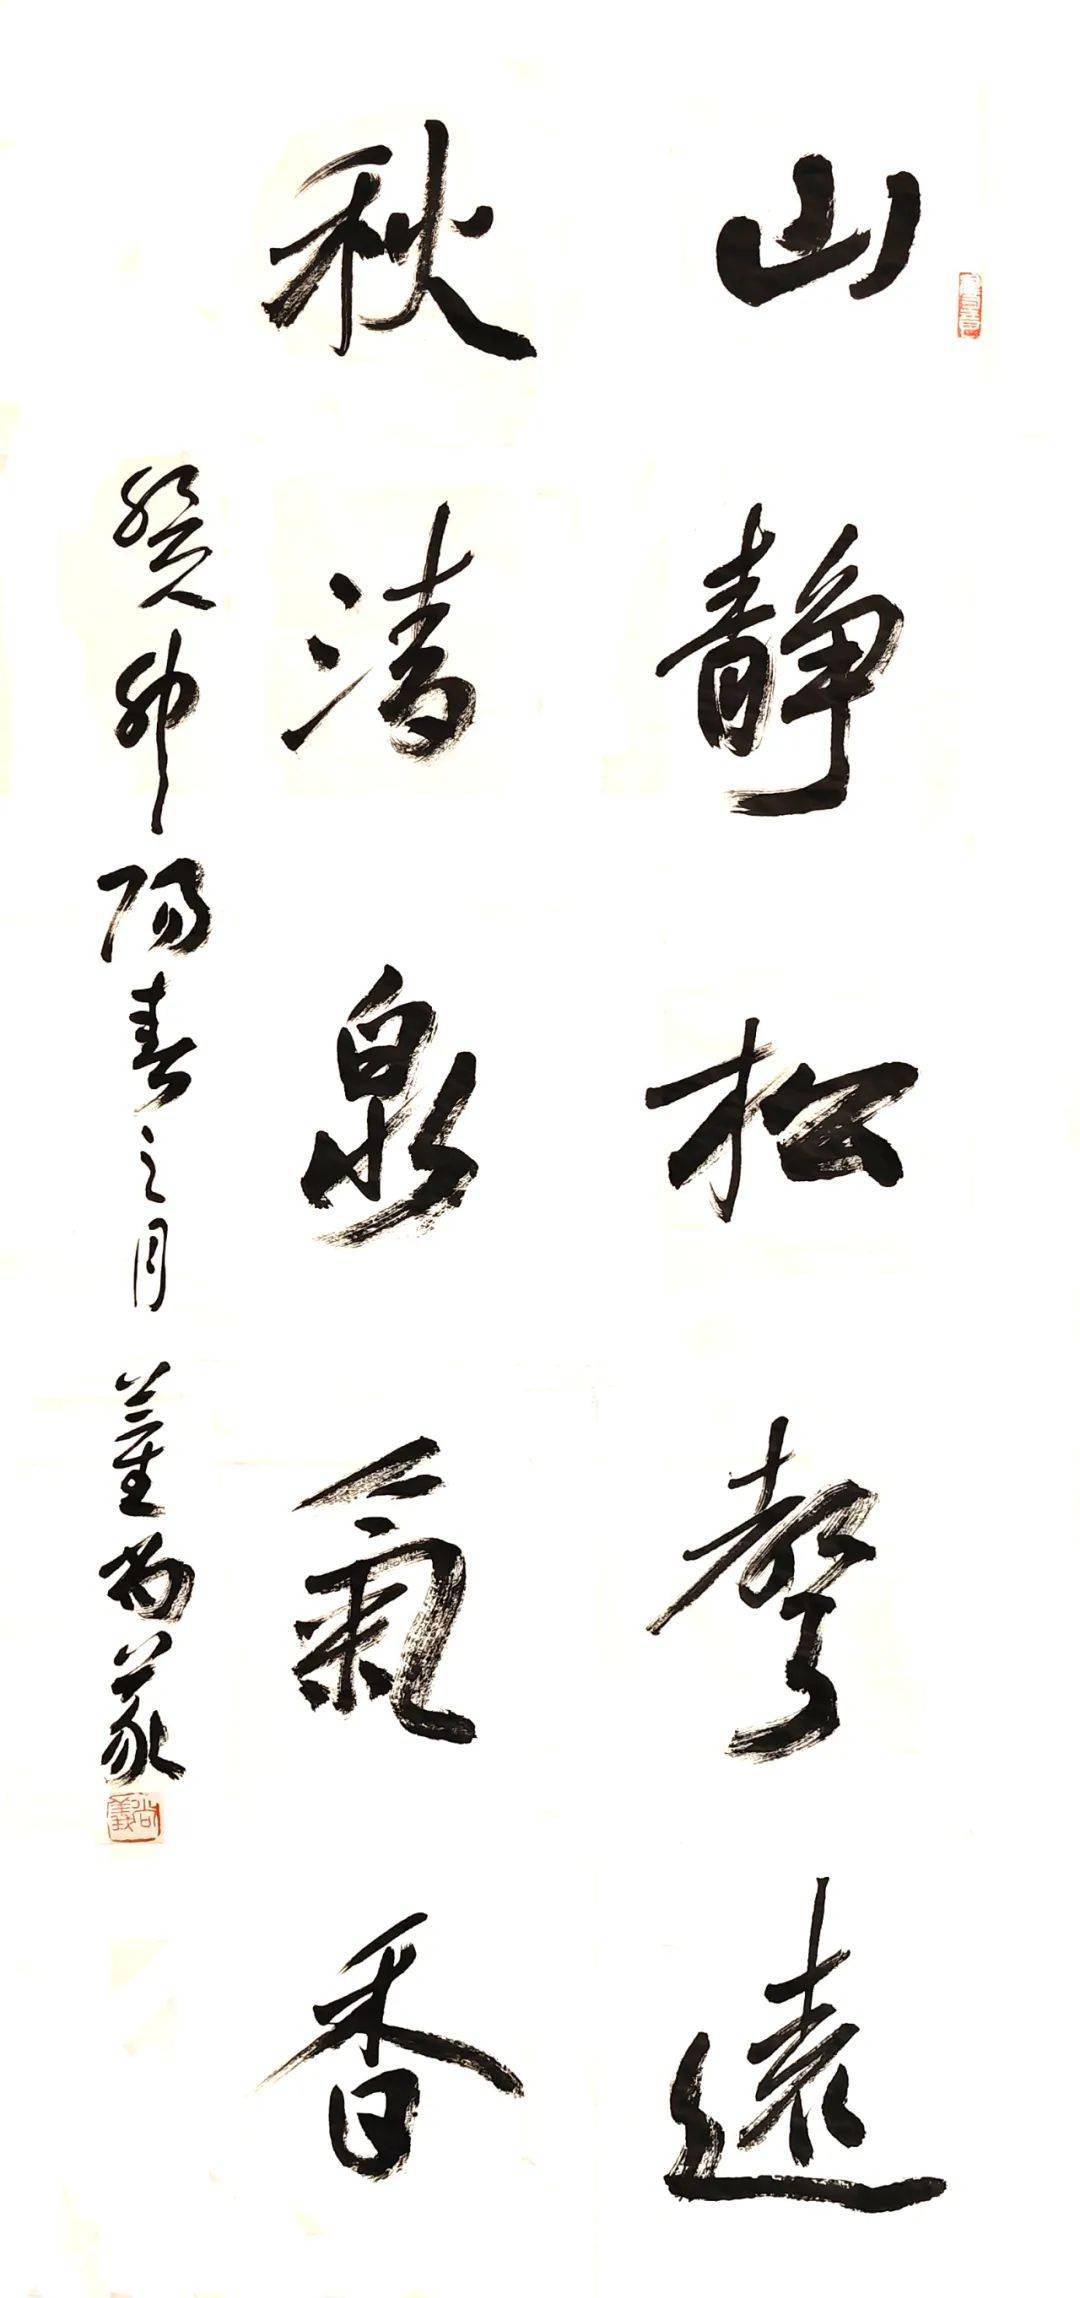 山靜松聲遠
秋清泉氣香
癸卯陽春之月 董尚義
尚義